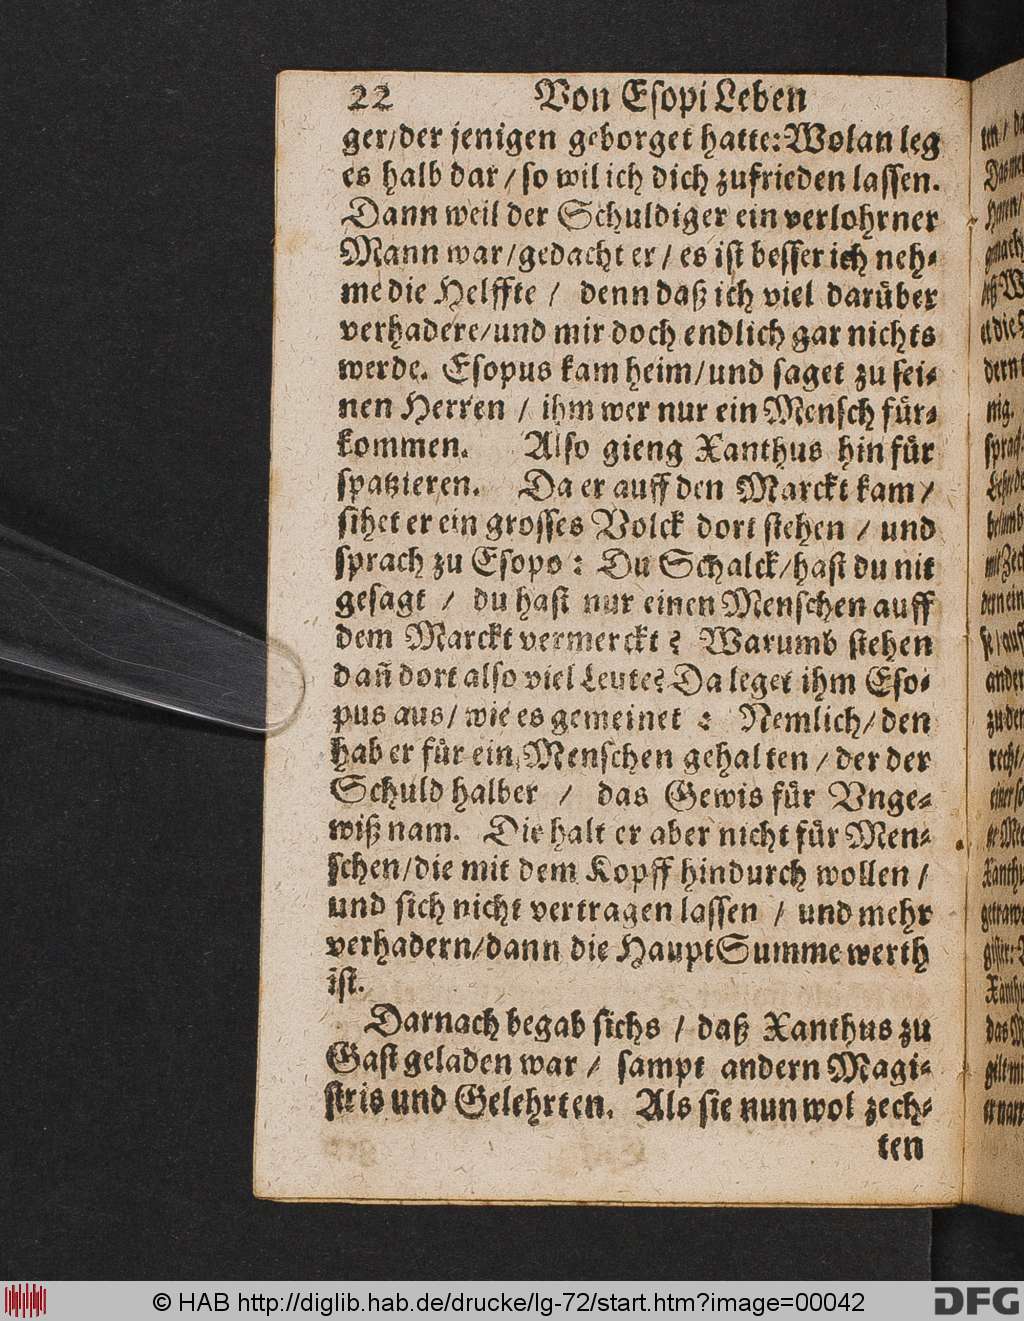 22 Von Esopi Leben
ger/der jenigen geborget hatte: Wolan leg
es halb dar / so wil ich dich zufrieden lassen.
Dann weil der Schuldiger ein verlohrner
Mann war/gedacht er / es ist besser ich neh-
me die Helffte / denn daß ich viel darüber
verhadere/und mir doch endlich gar nichts
werde. Esopus kam heim/und saget zu sei-
nen Herren / ihm wer nur ein Mensch für-
kommen. Also gieng Xanthus hin für
spatzieren. Da er auff den Marckt kam /
sihet er ein grosses Volck dort stehen / und
sprach zu Esopo: Du Schalck/hast du nit
gesagt / du hast nur einen Menschen auff
dem Marckt vermerckt? Warumb stehen
dañ dort also viel Leute? Da leget ihm Eso-
pus aus/ wie es gemeinet: Nemlich/ den
hab er für ein Menschen gehalten / der der
Schuld halber / das Gewis für Vnge-
wiß nam. Die halt er aber nicht für Men-
schen/die mit dem Kopff hindurch wollen /
und sich nicht vertragen lassen / und mehr
verhadern/dann die HauptSumme werth
ist.
Darnach begab sichs / daß Xanthus zu
Gast geladen war / sampt andern Magi-
stris und Gelehrten. Als sie nun wol zech-
ten
© HAB http://diglib.hab.de/drucke/lg-72/start.htm?image=00042
DFG